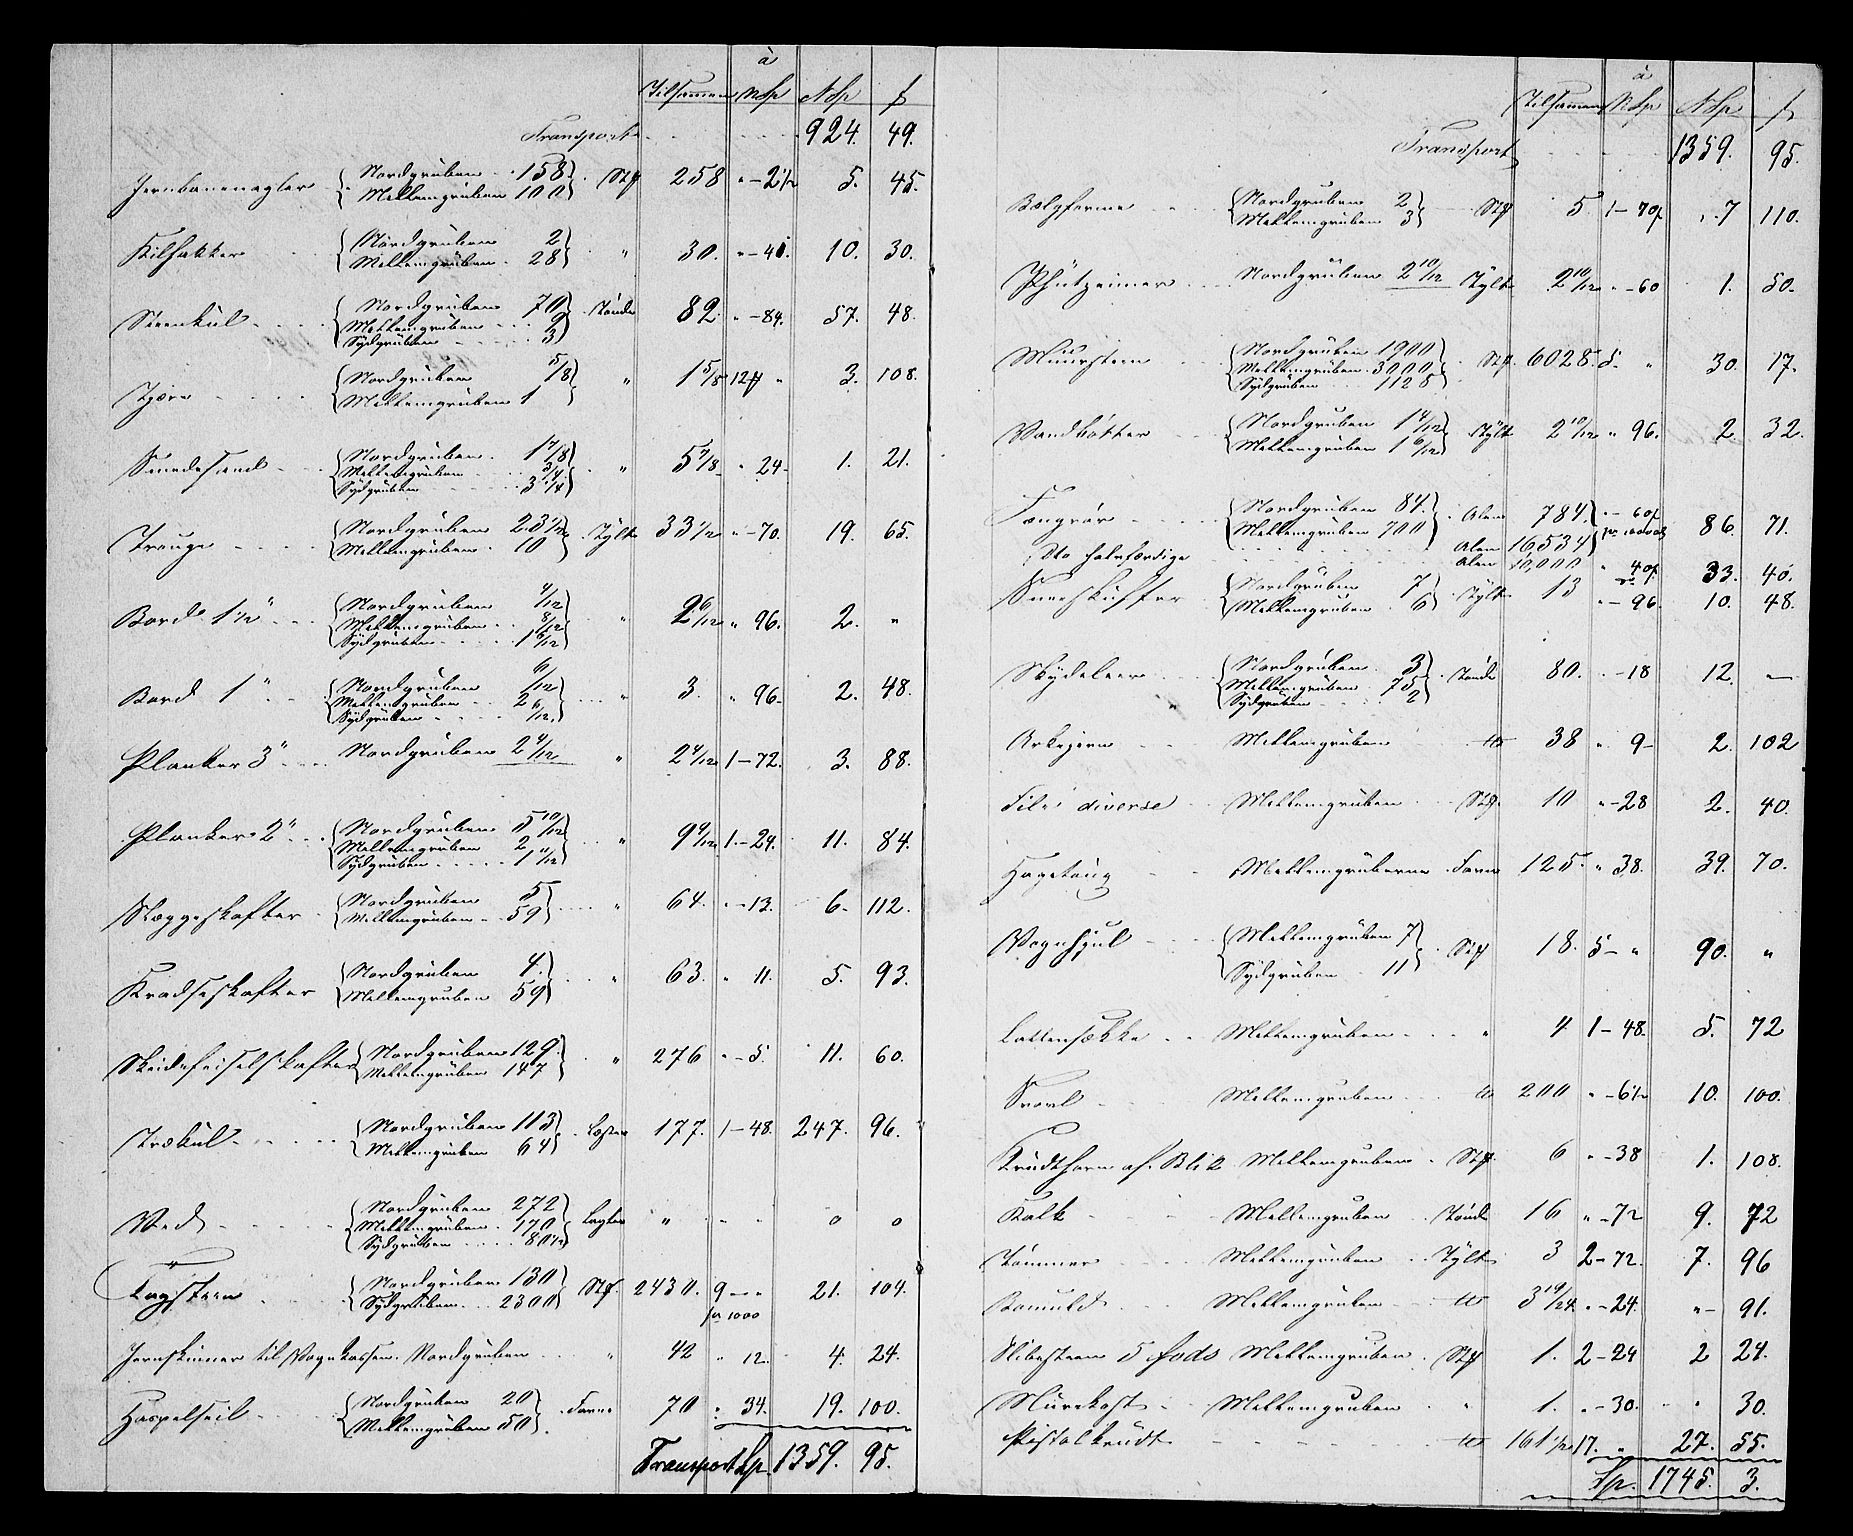 à
Tilsammen NSp NSp ſ
Transport 924. 49.
Jernbanenagler Nordgruben 158 Mellemgruben 100 Stk 258 " - 2 1/2 5. 45.
Kilsækker Nordgruben 2 Mellemgruben 28 " 30. " - 41. 10. 30.
Steenkul Nordgruben 70 Mellemgruben 9 Sydgruben 3 Tønder 82. " - 84. 57. 48.
Tjære Nordgruben 5/8 Mellemgruben 1 " 1 5/8 12 ſ " 3. 108.
Smedesand Nordgruben 1 7/8 Mellemgruben 3/4 Sydgruben 3 1/4 " 5 7/8 " 24 1. 21.
Trauge Nordgruben 23 1/2 Mellemgruben 10 Tylt 33 1/2 " - 70. 19. 65.
Bord 1 1/2" Nordgruben 4/12 Mellemgruben 8/12 Sydgruben 1 6/12 " 2 6/12 " 96. 2. "
Bord 1" Nordgruben 6/12 Mellemgruben 2 Sydgruben 6/12 " 3. " 96. 2. 48.
Planker 3" Nordgruben 2 4/12 " 2 4/12 1 - 72. 3. 88.
Planker 2" Nordgruben 5 10/12 Mellemgruben 2 Sydgruben 1 11/12 " 9 9/12 1. - 24. 11. 84.
Slæggeskafter Nordgruben 5 Mellemgruben 59 " 64. " - 13. 6. 112.
Kradseskafter Nordgruben 4. Mellemgruben 59 " 63. " 11. 5. 93.
Skeidefeiselskafter Nordgruben 129. Mellemgruben 147 " 276 " - 5. 11. 60.
Trækul Nordgruben 113 Mellemgruben 64 Læster 177. 1 - 48. 247. 96.
Ved Nordgruben 272 Mellemgruben 170 Sydgruben 80 1/2 Lagter " " " 0 0
Tagsteen Nordgruben 130 Sydgruben 2300 Stk. 2430. 9 - " 21. 104.
pr 1000
Jernskinner til Vognkassen. Nordgruben " 42 " 12. 4. 24.
Haspelseil Nordgruben 20 Mellemgruben 50 Favne 70 " 34. 19. 100.
Transport Sp. 1359. 95.
à
Tilsammen NSp NSp ſ
Transport 1359. 95.
Bælghorne Nordgruben 2 Mellemgruben 3 Stk 5. 1 - 70 ſ 7 110.
Phützeimer Nordgruben 2 10/12 Tylt 2 10/12 " - 60 1. 50.
Muursteen Nordgruben 1900 Mellemgruben 3000 Sydgruben 1128 Stk. 6028. 5. " 30. 17.
Vandbøtter Nordgruben 1 4/12 Mellemgruben 1 6/12 Tylt 2 10/12 " 96. 2. 32.
Fængrør Nordgruben 84. Mellemgruben 700 Alen 784. " - 60 ſ 86. 71.
Dto halvfærdige Alen 16534
Alen 10,000 " 40 ſ 33. 40.
Sneeskuffer Nordgruben 7 Mellemgruben 6 Tylt 13 " - 96. 10. 48.
Skydeleer Nordgruben 3 Mellemgruben 75 Sydgruben 2 Tønde 80. " - 18 12. —
Arkejern Mellemgruben 38 " 9 - 2. 102
File diverse Mellemgruben Stk. 10 " - 28 2. 40.
Hagetoug Mellemgruberne Favne 125. " 38. 39. 70.
Vognhjul Mellemgruben 7 Sydgruben 11 Stk 18. 5 - " 90. "
Lattensække Mellemgruben " 4 1 - 48. 5. 72
Svovl Mellemgruben 200 " - 6 1/2 10. 100.
Krudthorn af Blik Mellemgruben Stk. 6 " - 38 1. 108.
Kalk Mellemgruben Tønde 16 " - 72 9. 72
Tømmer Mellemgruben Tylt 3 2 - 72. 7. 96
Bomuld Mellemgruben 3 19/24 " - 24. " - 91.
Slibesteen 5 fods Mellemgruben Stk 1. 2 - 24 2 24.
Murekost Mellemgruben " 1. " - 30. " 30.
Pistolkrudt 161 1/2 17. " 27. 55.
Sp. 1745. 3.